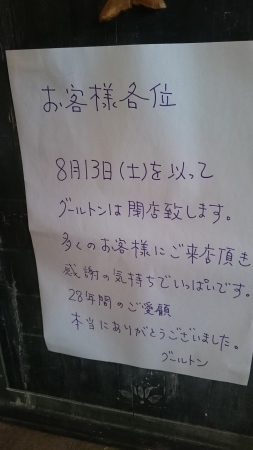 お客様各位
8月13日(土)を以って
グールトンは閉店致します。
多くのお客様にご来店頂き
感謝の気持ちでいっぱいです。
28年間のご愛顧
本当にありがとうございました。
グールトン